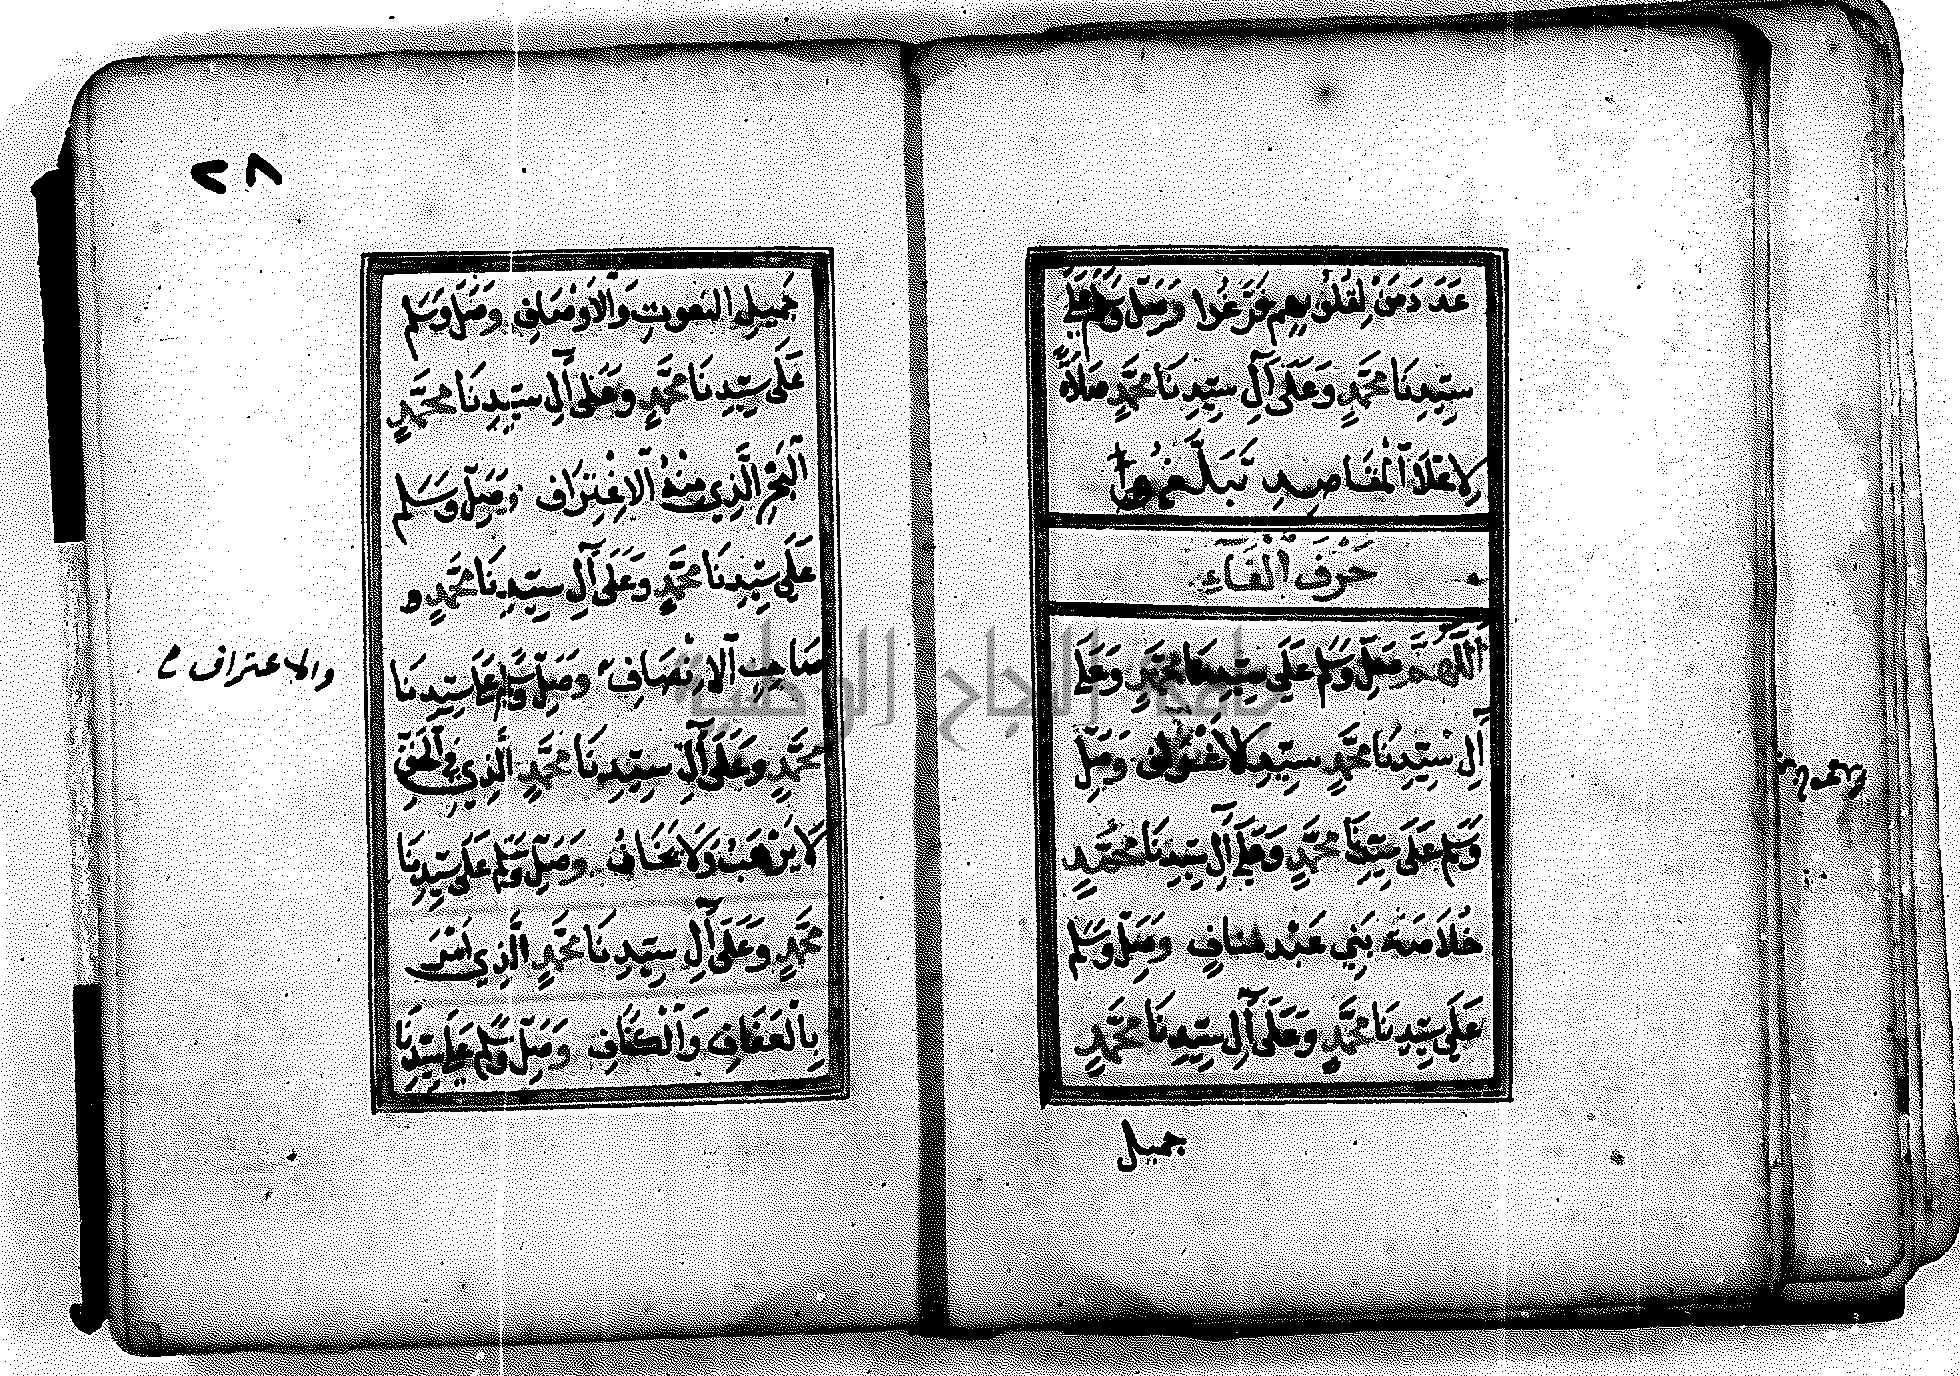 عَدَدَ مَنْ لِقُلُوبِهِم وَصَلِّ وَسَلِّم عَلَى
سَيِّدِنَا مُحَمَّدٍ وَعَلَى آلِ سَيِّدِنَا مُحَمَّدٍ صَلَاةً
لِاعْلَا الْمَقَاصِدِ تُبَلِّغُ
حَرْفُ الْفَاءِ
اَللَّهُمَّ صَلِّ وَسَلِّم عَلَى سَيِّدِنَا مُحَمَّدٍ وَعَلَى
آلِ سَيِّدِنَا مُحَمَّدٍ سَيِّدِ الْأَشْرَافِ وَصَلِّ
وَسَلِّم عَلَى سَيِّدِنَا مُحَمَّدٍ وَعَلَى آلِ سَيِّدِنَا مُحَمَّدٍ
خُلَاصَةِ بَنِي عَبْدِ مَنَافٍ وَصَلِّ وَسَلِّم
عَلَى سَيِّدِنَا مُحَمَّدٍ وَعَلَى آلِ سَيِّدِنَا مُحَمَّدٍ
جميل
٢٨
جَمِيلِ النُّعُوتِ وَالْأَوْصَافِ وَصَلِّ وَسَلِّم
عَلَى سَيِّدِنَا مُحَمَّدٍ وَعَلَى آلِ سَيِّدِنَا مُحَمَّدٍ
الْبَحْرِ الَّذِي مِنْهُ الْاِغْتِرَافُ وَصَلِّ وَسَلِّم
عَلَى سَيِّدِنَا مُحَمَّدٍ وَعَلَى آلِ سَيِّدِنَا مُحَمَّدٍ و
صَاحِبِ الْاِنْصَافِ وَصَلِّ وَسَلِّم عَلَى سَيِّدِنَا
والاعتراف
مُحَمَّدٍ وَعَلَى آلِ سَيِّدِنَا مُحَمَّدٍ الَّذِي فِي الْحَقِّ
لَا يَرْهَبُ وَلَا يَخَافُ وَصَلِّ وَسَلِّم عَلَى سَيِّدِنَا
مُحَمَّدٍ وَعَلَى آلِ سَيِّدِنَا مُحَمَّدٍ الَّذِي أَمَرَ
بِالْعَفَافِ وَالْكَفَافِ وَصَلِّ وَسَلِّم عَلَى سَيِّدِنَا
جامعة النجاح الوطنية